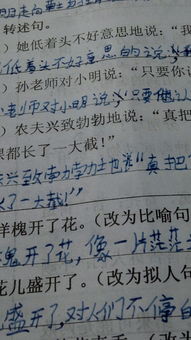 转述句。
)她低着头不好意思地说：“我
低着头不好意思的说，
)孙老师对小明说：“只要你认
老师对小明说，只要他认
)农夫兴致勃勃地说：“真把
果都长了一大截！”
了一大截！”
洋槐开了花。（改为比喻句
槐开了花，像一片茫茫
花儿盛开了。（改为拟人句
盛开了，对人们不停的